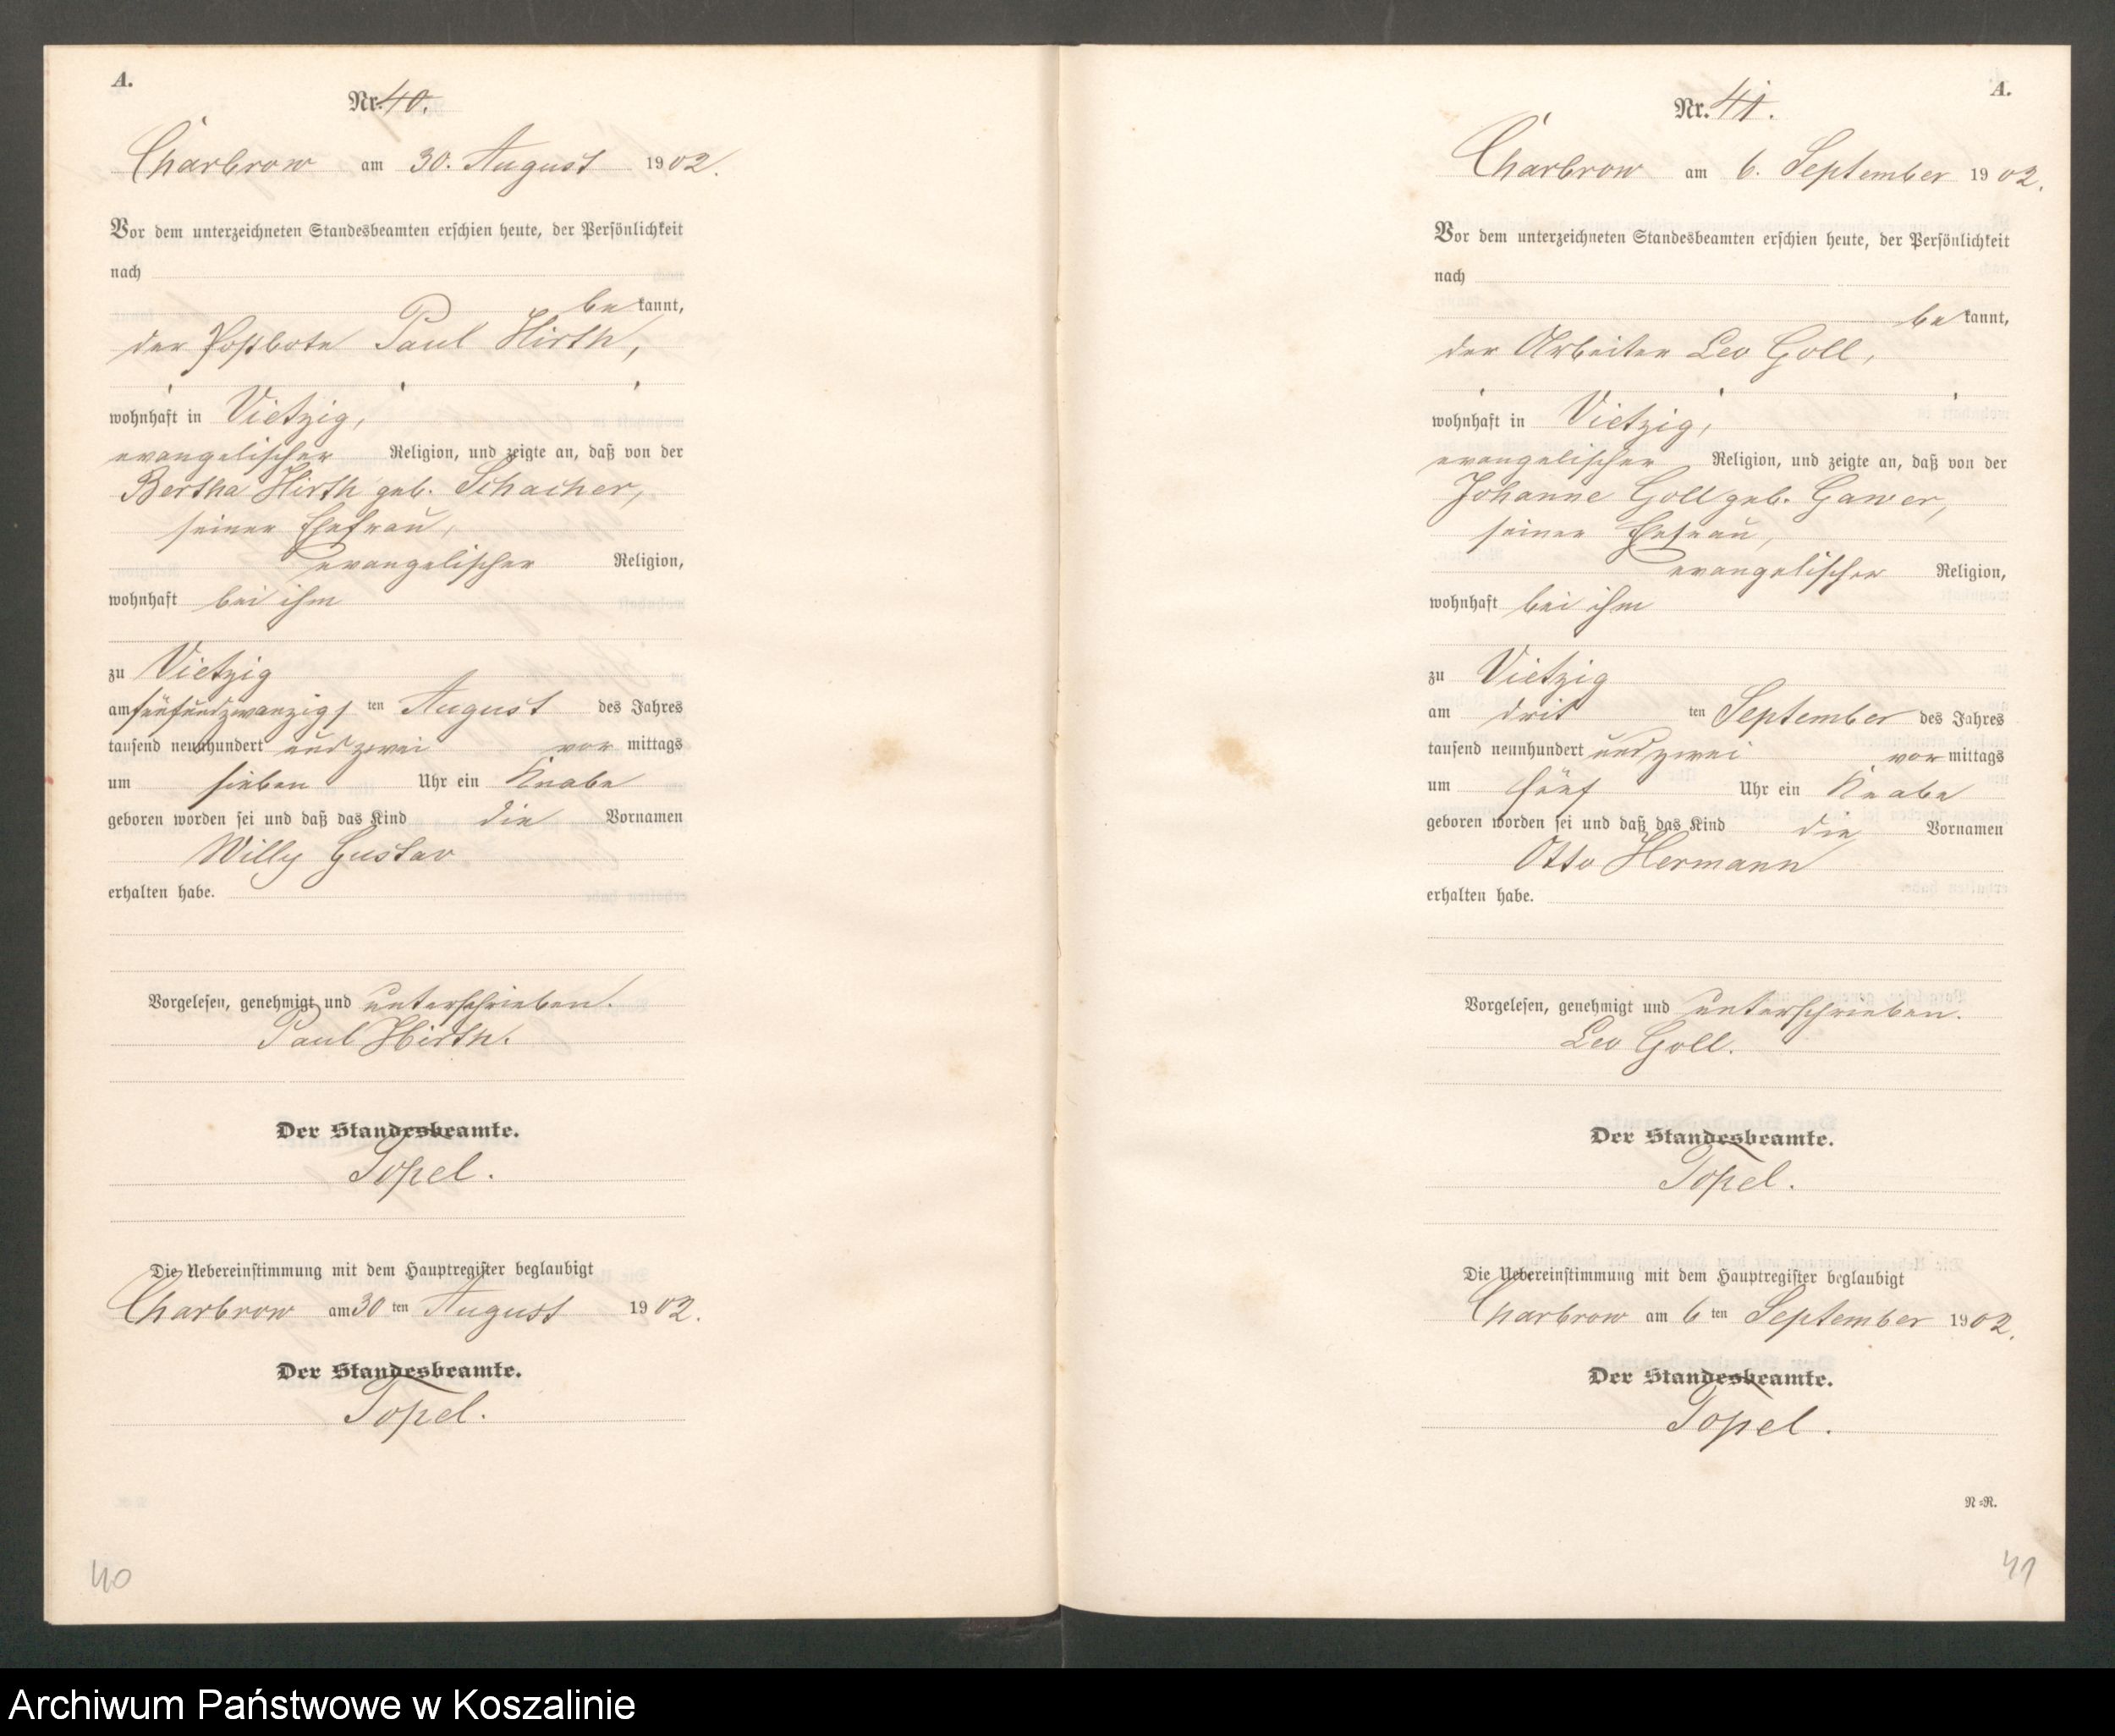 A.
Nr. 40.
Charbrow am 30. August 1902.
Vor dem unterzeichneten Standesbeamten erschien heute, der Persönlichkeit
nach
bekannt,
der Postbote Paul Hirth,
wohnhaft in Vietzig,
evangelischer Religion, und zeigte an, daß von der
Bertha Hirth geb. Schacher,
seiner Ehefrau,
evangelischer Religion,
wohnhaft bei ihm
zu Vietzig
am fünfundzwanzigsten August des Jahres
tausend neunhundert und zwei vormittags
um sieben Uhr ein Knabe
geboren worden sei und daß das Kind die Vornamen
Willy Gustav
erhalten habe.
Vorgelesen, genehmigt und unterschrieben.
Paul Hirth.
Der Standesbeamte.
Topel.
Die Uebereinstimmung mit dem Hauptregister beglaubigt
Charbrow am 30ten August 1902.
Der Standesbeamte.
Topel.
40
A.
Nr. 41.
Charbrow am 6. September 1902.
Vor dem unterzeichneten Standesbeamten erschien heute, der Persönlichkeit
nach
bekannt,
der Arbeiter Leo Goll,
wohnhaft in Vietzig,
evangelischer Religion, und zeigte an, daß von der
Johanne Goll geb. Gawer,
seiner Ehefrau,
evangelischer Religion,
wohnhaft bei ihm
zu Vietzig
am dritten September des Jahres
tausend neunhundert und zwei vormittags
um fünf Uhr ein Knabe
geboren worden sei und daß das Kind die Vornamen
Otto Hermann
erhalten habe.
Vorgelesen, genehmigt und unterschrieben.
Leo Goll.
Der Standesbeamte.
Topel.
Die Uebereinstimmung mit dem Hauptregister beglaubigt
Charbrow am 6ten September 1902.
Der Standesbeamte.
Topel.
N=R.
41
Archiwum Państwowe w Koszalinie